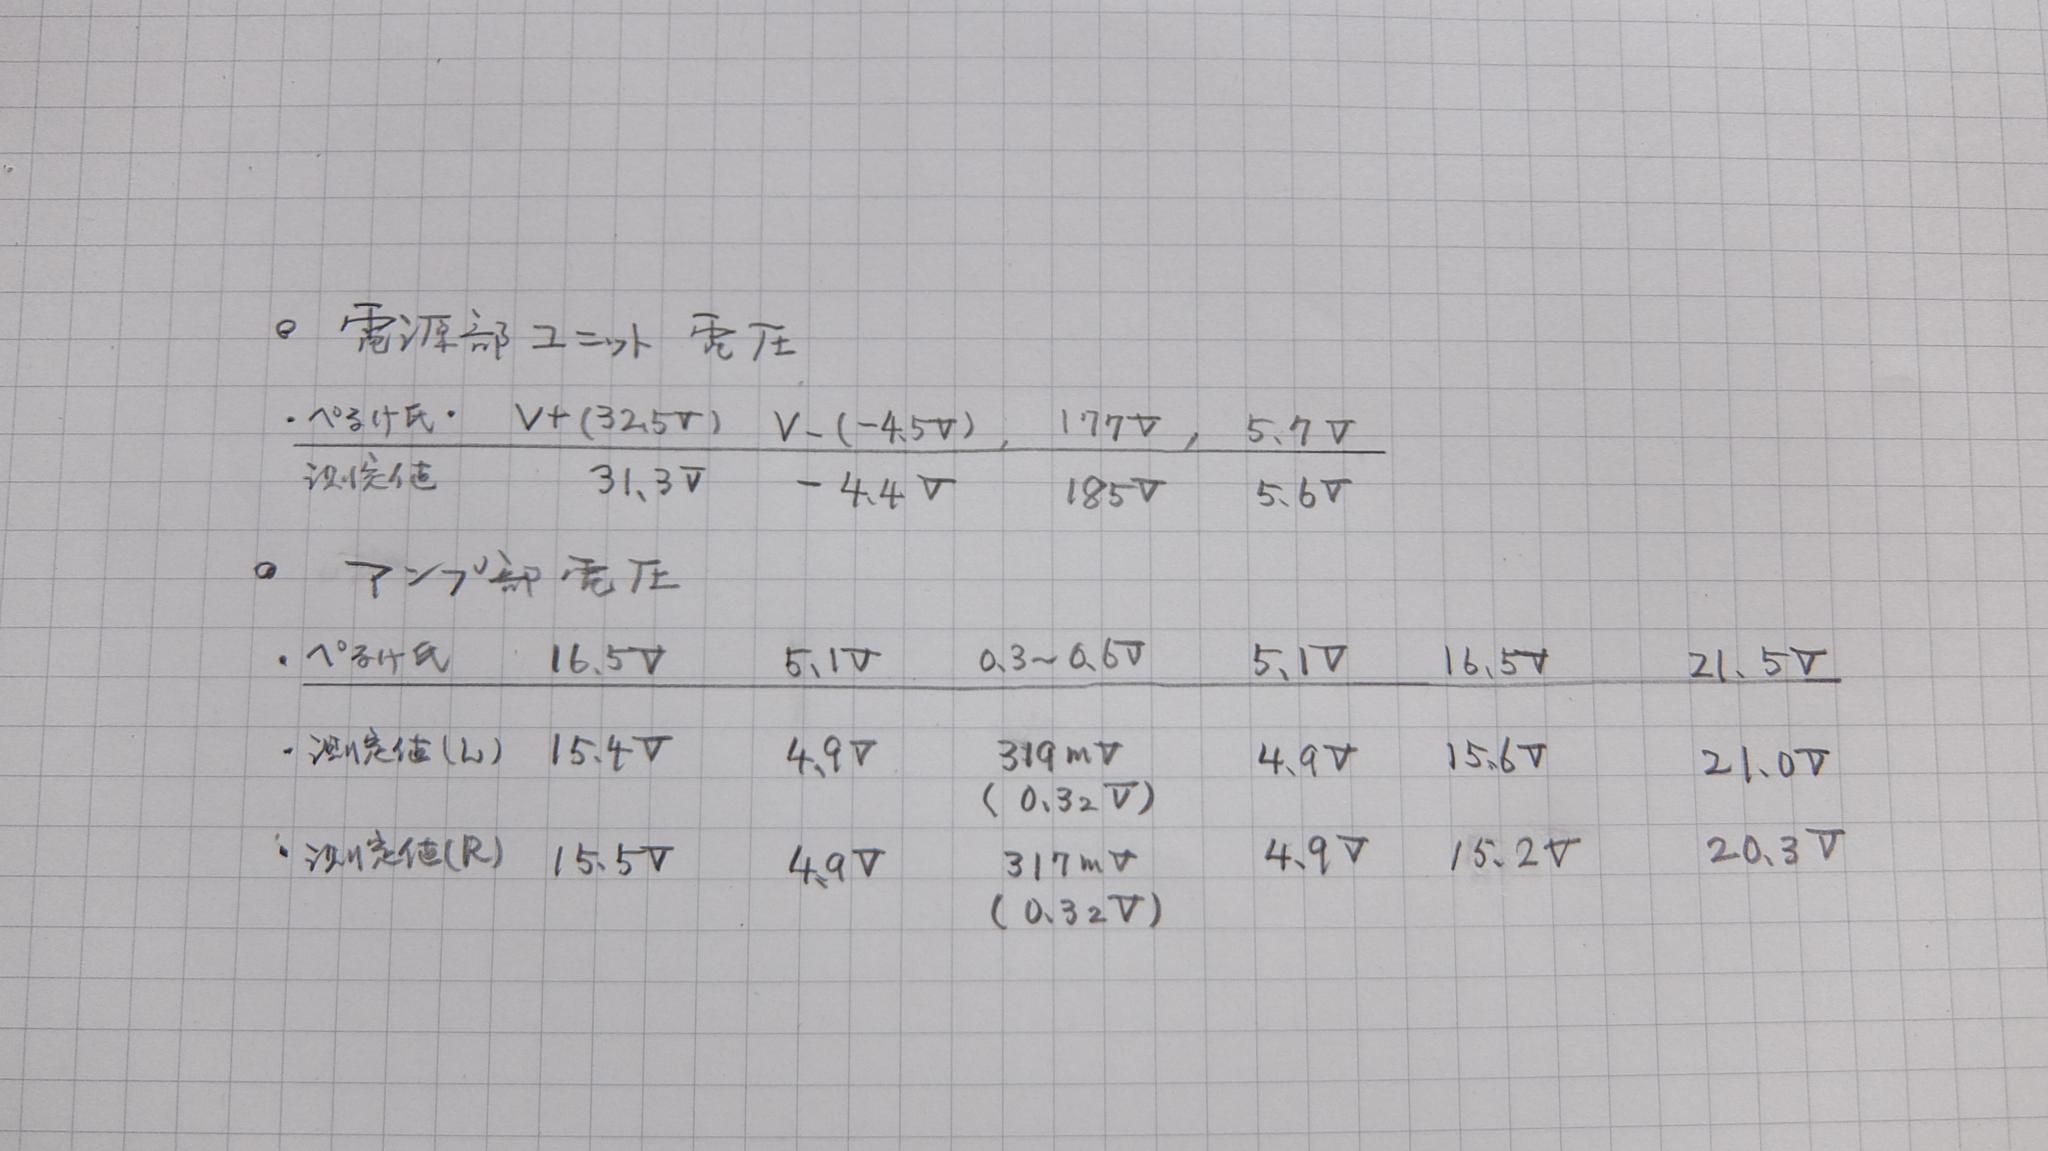 電源部ユニット 電圧
・ぺるけ氏・ V+(32.5V) V-(-4.5V), 177V, 5.7V
測定値 31.3V -4.4V 185V 5.6V
アンプ部電圧
・ぺるけ氏 16.5V 5.1V 0.3~0.6V 5.1V 16.5V 21.5V
・測定値(L) 15.4V 4.9V 319mV 4.9V 15.6V 21.0V
(0.32V)
・測定値(R) 15.5V 4.9V 317mV 4.9V 15.2V 20.3V
(0.32V)